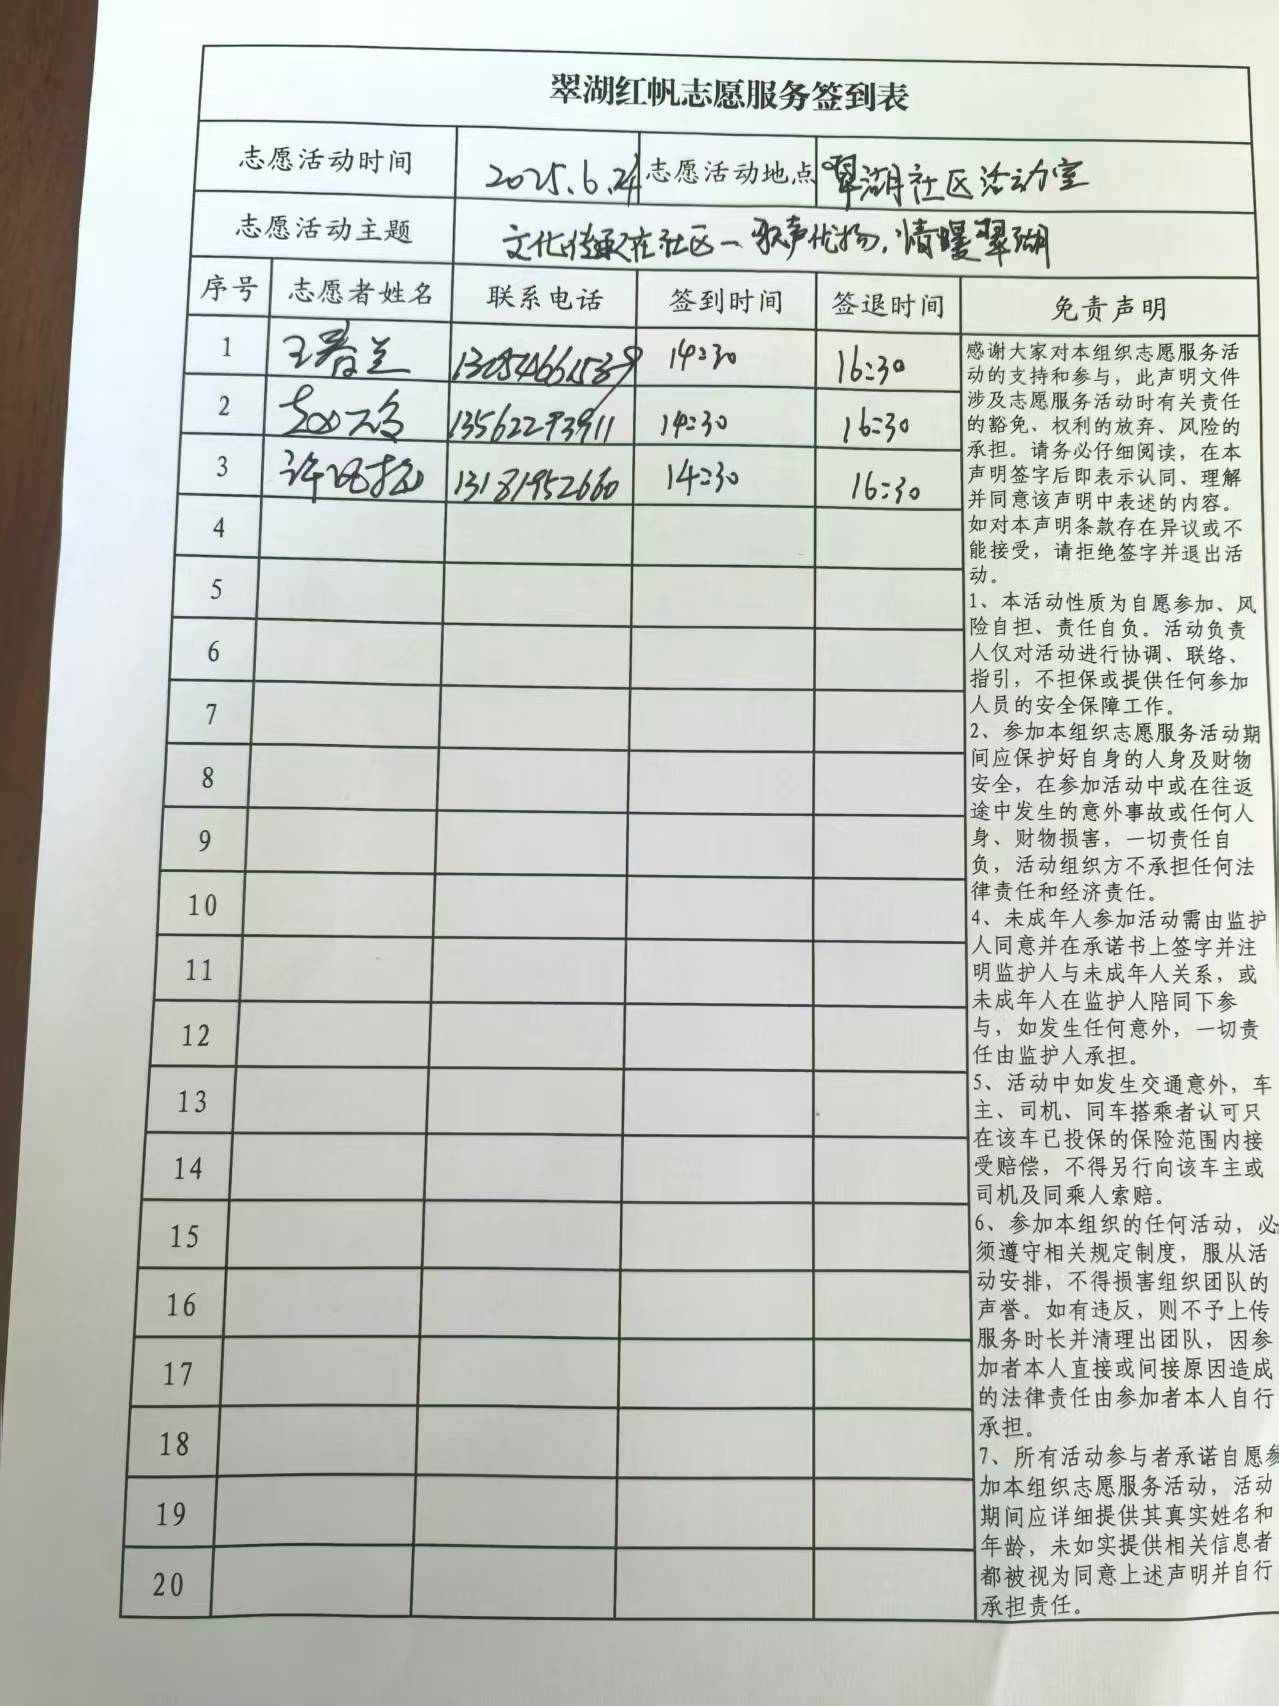 翠湖红帆志愿服务签到表
志愿活动时间 2025.6.24 志愿活动地点 翠湖社区活动室
志愿活动主题 文化传承在社区—歌声优扬,情暖翠湖
序号 志愿者姓名 联系电话 签到时间 签退时间 免责声明
1 王春兰 14:30 16:30
2 13562273911 14:30 16:30
3 许 13181952660 14:30 16:30
4
5
6
7
8
9
10
11
12
13
14
15
16
17
18
19
20
感谢大家对本组织志愿服务活
动的支持和参与，此声明文件
涉及志愿服务活动时有关责任
的豁免、权利的放弃、风险的
承担。请务必仔细阅读，在本
声明签字后即表示认同、理解
并同意该声明中表述的内容。
如对本声明条款存在异议或不
能接受，请拒绝签字并退出活
动。
1、本活动性质为自愿参加、风
险自担、责任自负。活动负责
人仅对活动进行协调、联络、
指引，不担保或提供任何参加
人员的安全保障工作。
2、参加本组织志愿服务活动期
间应保护好自身的人身及财物
安全，在参加活动中或在往返
途中发生的意外事故或任何人
身、财物损害，一切责任自
负，活动组织方不承担任何法
律责任和经济责任。
4、未成年人参加活动需由监护
人同意并在承诺书上签字并注
明监护人与未成年人关系，或
未成年人在监护人陪同下参
与，如发生任何意外，一切责
任由监护人承担。
5、活动中如发生交通意外，车
主、司机、同车搭乘者认可只
在该车已投保的保险范围内接
受赔偿，不得另行向该车主或
司机及同乘人索赔。
6、参加本组织的任何活动，必
须遵守相关规定制度，服从活
动安排，不得损害组织团队的
声誉。如有违反，则不予上传
服务时长并清理出团队，因参
加者本人直接或间接原因造成
的法律责任由参加者本人自行
承担。
7、所有活动参与者承诺自愿参
加本组织志愿服务活动，活动
期间应详细提供其真实姓名和
年龄，未如实提供相关信息者
都被视为同意上述声明并自行
承担责任。